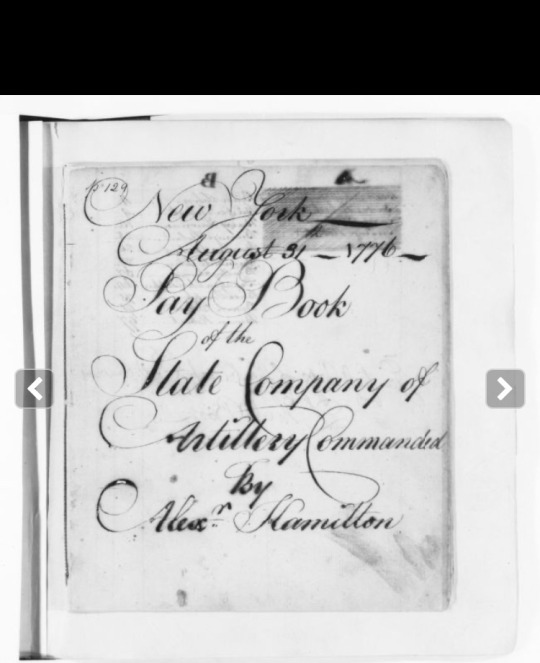 15129
B A
New York
August 31th - 1776 -
Pay Book
of the
State Company of
Artillery Commanded
By
Alexr Hamilton